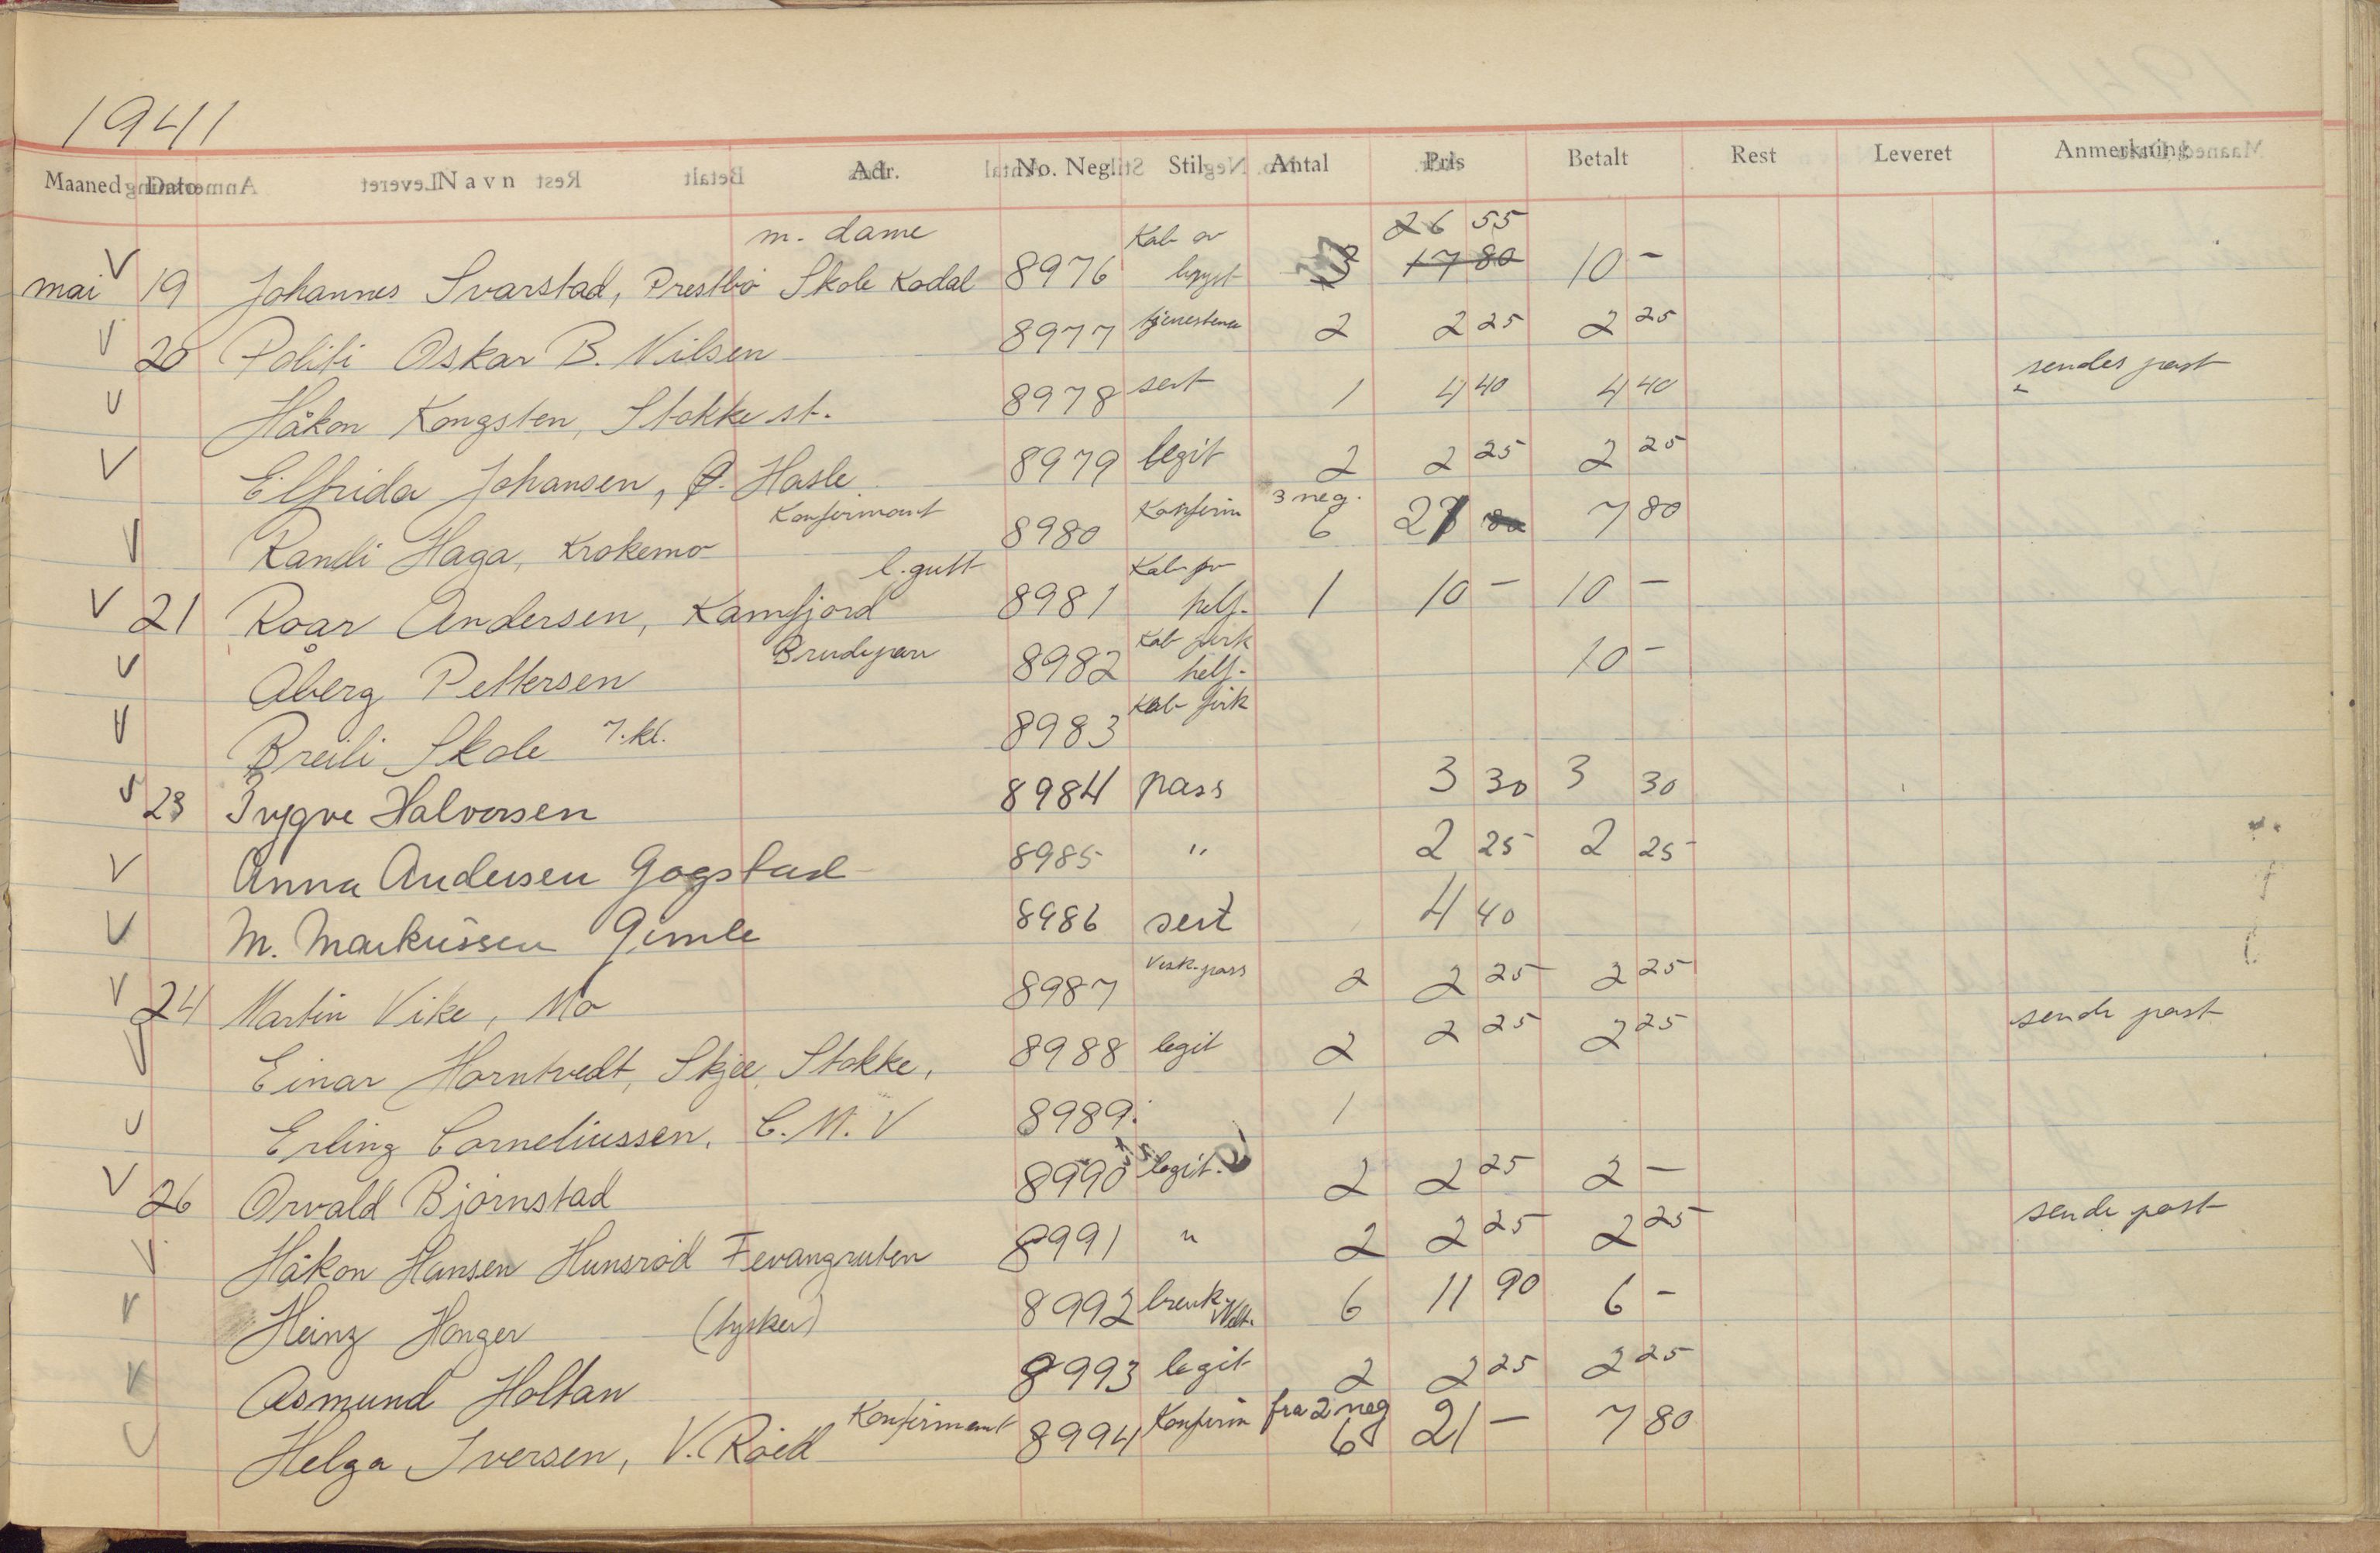 1941
Maaned Dato Navn Adr. No. Negl. Stil Antal Pris Betalt Rest Leveret Anmerkning
m. dame Kab 26 55
mai V 19 Johannes Svarstad, Prestbø Skole Kodal 8976 3 17 80 10 -
V 20 Politi Oskar B. Nilsen 8977 2 2 25 2 25
V Håkon Kongsten, Stokke st. 8978 sert 1 4 40 4 40 sendes post
V Elfrida Johansen, Ø. Hasle 8979 legit 2 2 25 2 25
Konfirmant 3 neg.
V Randi Haga, Krokemo 8980 Konfirm 6 7 80
l. gutt Kab
V 21 Roar Andersen, Kamfjord 8981 helf. 1 10 - 10 -
Brudepar Kab
V Åberg Pettersen 8982 helf. 10 -
V Breili Skole 7. kl. 8983 Kab
V 23 Trygve Halvorsen 8984 pass 3 30 3 30
V Anna Andersen Gogstad 8985 " 2 25 2 25
V M. Markussen Gimle 8986 sert 4 40
V 24 Martin Vike, Mo 8987 pass 2 2 25 2 25
V Einar Horntvedt, Skjee, Stokke, 8988 legit 2 2 25 2 25 sende post
V Erling Corneliussen, C. M. V 8989 1
V 26 Orvald Bjørnstad 8990 legit. 2 2 25 2 -
V Håkon Hansen Hunsrød Fevangruten 8991 " 2 2 25 2 25 sende post
V Heinz Honger (tysker) 8992 6 11 90 6 -
V Asmund Holtan 8993 legit 2 2 25 2 25
Konfirmant fra 2 neg
V Helga Iversen, V. Råell 8994 Konfirm 6 21 - 7 80